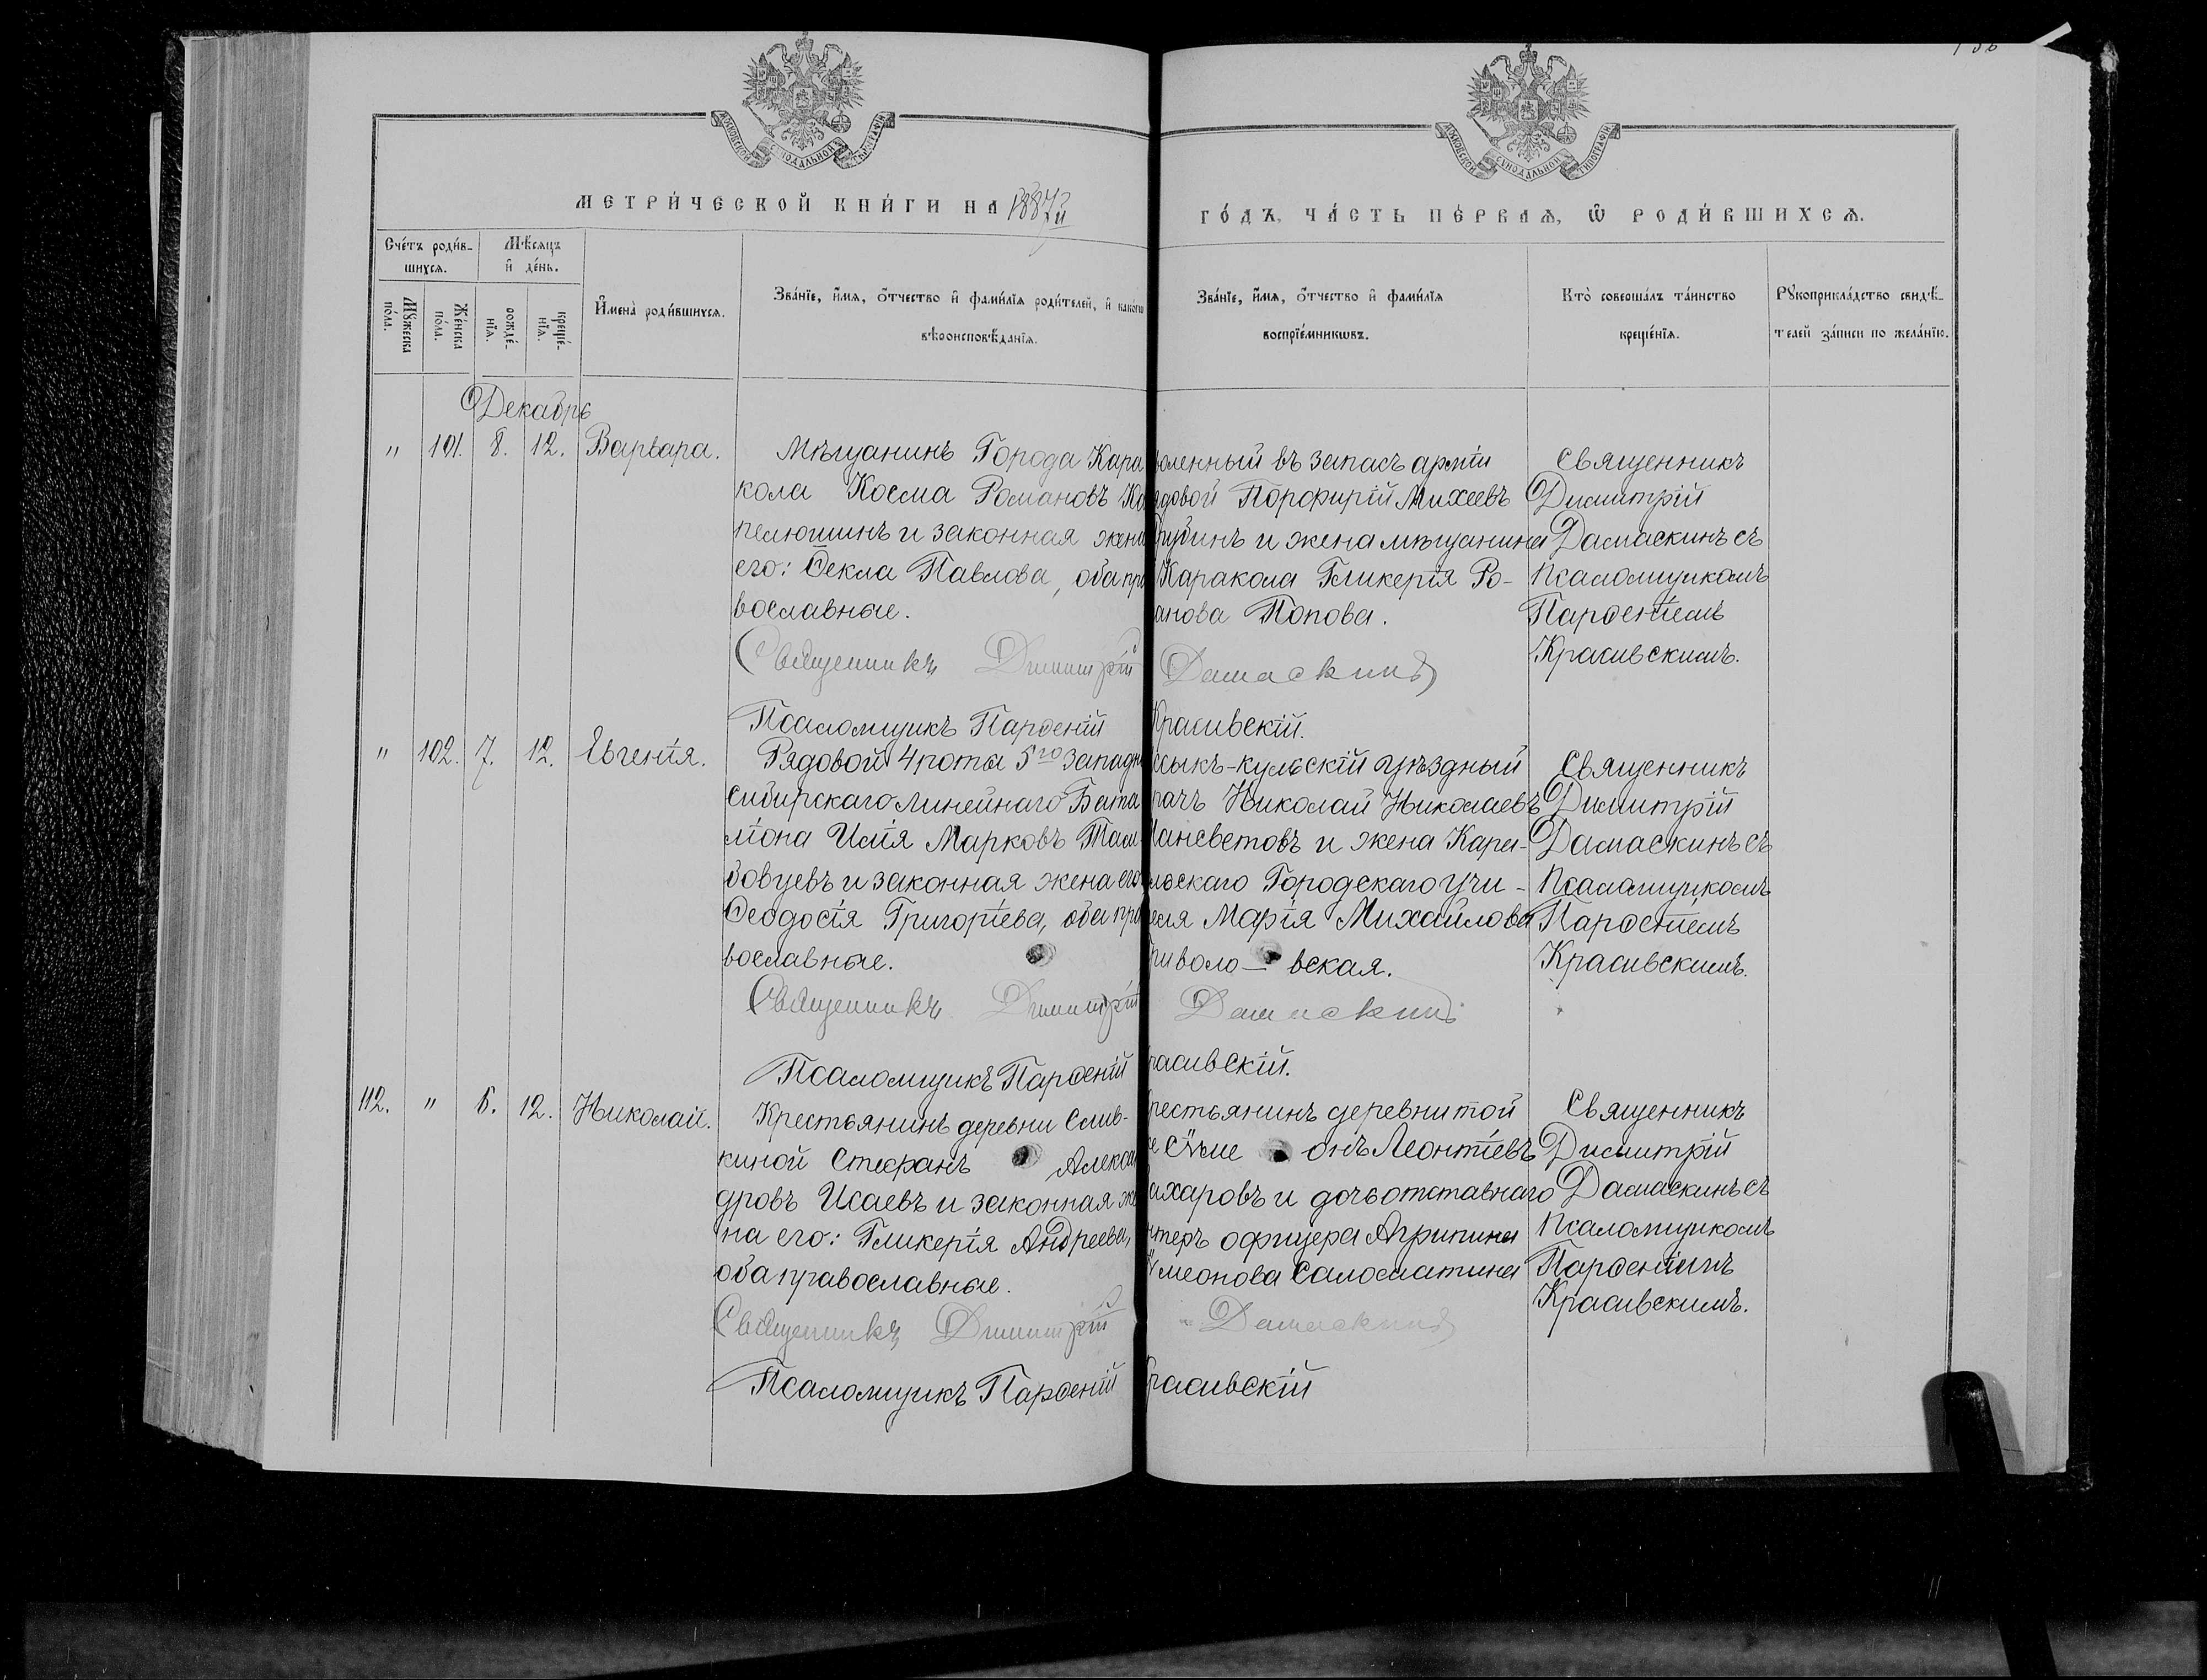 МОСКОВСКОЙ СѴНОДАЛЬНОЙ ТИПОГРАФІИ
МОСКОВСКОЙ СѴНОДАЛЬНОЙ ТИПОГРАФІИ
МЕТРИ́ЧЕСКОЙ КНИ́ГИ НА 1887й
ГО́ДЪ, ЧА́СТЬ ПЕ́РВАѦ, Ѡ҆ РОДИ́ВШИХСѦ.
Сче́тъ роди́в-
шихсѧ.
Мꙋ́жеска по́ла.
Же́нска по́ла.
Мѣ́сѧцъ
и҆ де́нь.
рожде́-
нїѧ.
креще́-
нїѧ.
И҆мена̀ роди́вшихсѧ.
Зва́нїе, и҆́мѧ, ѻ҆́тчество и҆ фами́лїѧ роди́телей, и҆ како́гѡ
вѣроисповѣ́данїѧ.
Зва́нїе, и҆́мѧ, ѻ҆́тчество и҆ фами́лїѧ
воспрїе́мникѡвъ.
Кто̀ соверша́лъ та́инство
креще́нїѧ.
Рꙋкоприкла́дство свидѣ́-
телей за́писи по жела́нїю.
Декабрь
" 101. 8. 12. Варвара.
Мѣщанинъ Города Кара
кола Косма Романовъ Ко
пелюшинъ и законная жена
его: Ѳекла Павлова, оба пра
вославные.
воленный въ запасъ арміи
ядовой Порфирій Михеевъ
Трубинъ и жена мѣщанина
Каракола Гликерія Ро-
анова Попова.
Священникъ
Димитрій
Дамаскинъ съ
Псаломщикомъ
Парѳеніемъ
Красивскимъ.
Священникъ Димитрій Дамаскинъ
Псаломщикъ Парѳеній Красивскій.
" 102. 7. 12. Евгенія.
Рядовой 4 роты 5го Западно
сибирскаго линейнаго Бата
ліона Илія Марковъ Там
бовцевъ и законная жена его
Ѳеодосія Григоріева, оба пра
вославные.
ссыкъ-кульскій уѣздный
рачъ Николай Николаевъ
Пансветовъ и жена Кара-
льскаго Городскаго Учи-
еля Марія Михайлова
риволо— вская.
Священникъ
Димитрій
Дамаскинъ съ
Псаломщикомъ
Парѳеніемъ
Красивскимъ.
Священникъ Димитрій Дамаскинъ
Псаломщикъ Парѳеній расивскій.
112. " 6. 12. Николай.
Крестьянинъ деревни Слив-
киной Стефанъ Алексан
дровъ Исаевъ и законная же
на его: Гликерія Андреева,
оба православные.
рестьянинъ деревни той
е Сѵме онъ Леонтіевъ
ахаровъ и дочь отставнаго
нтеръ офицера Агрипина
ѵмеонова Саломатина
Священникъ
Димитрій
Дамаскинъ съ
Псаломщикомъ
Парѳеніемъ
Красивскимъ.
Священникъ Димитрій Дамаскинъ
Псаломщикъ Парѳеній расивскій